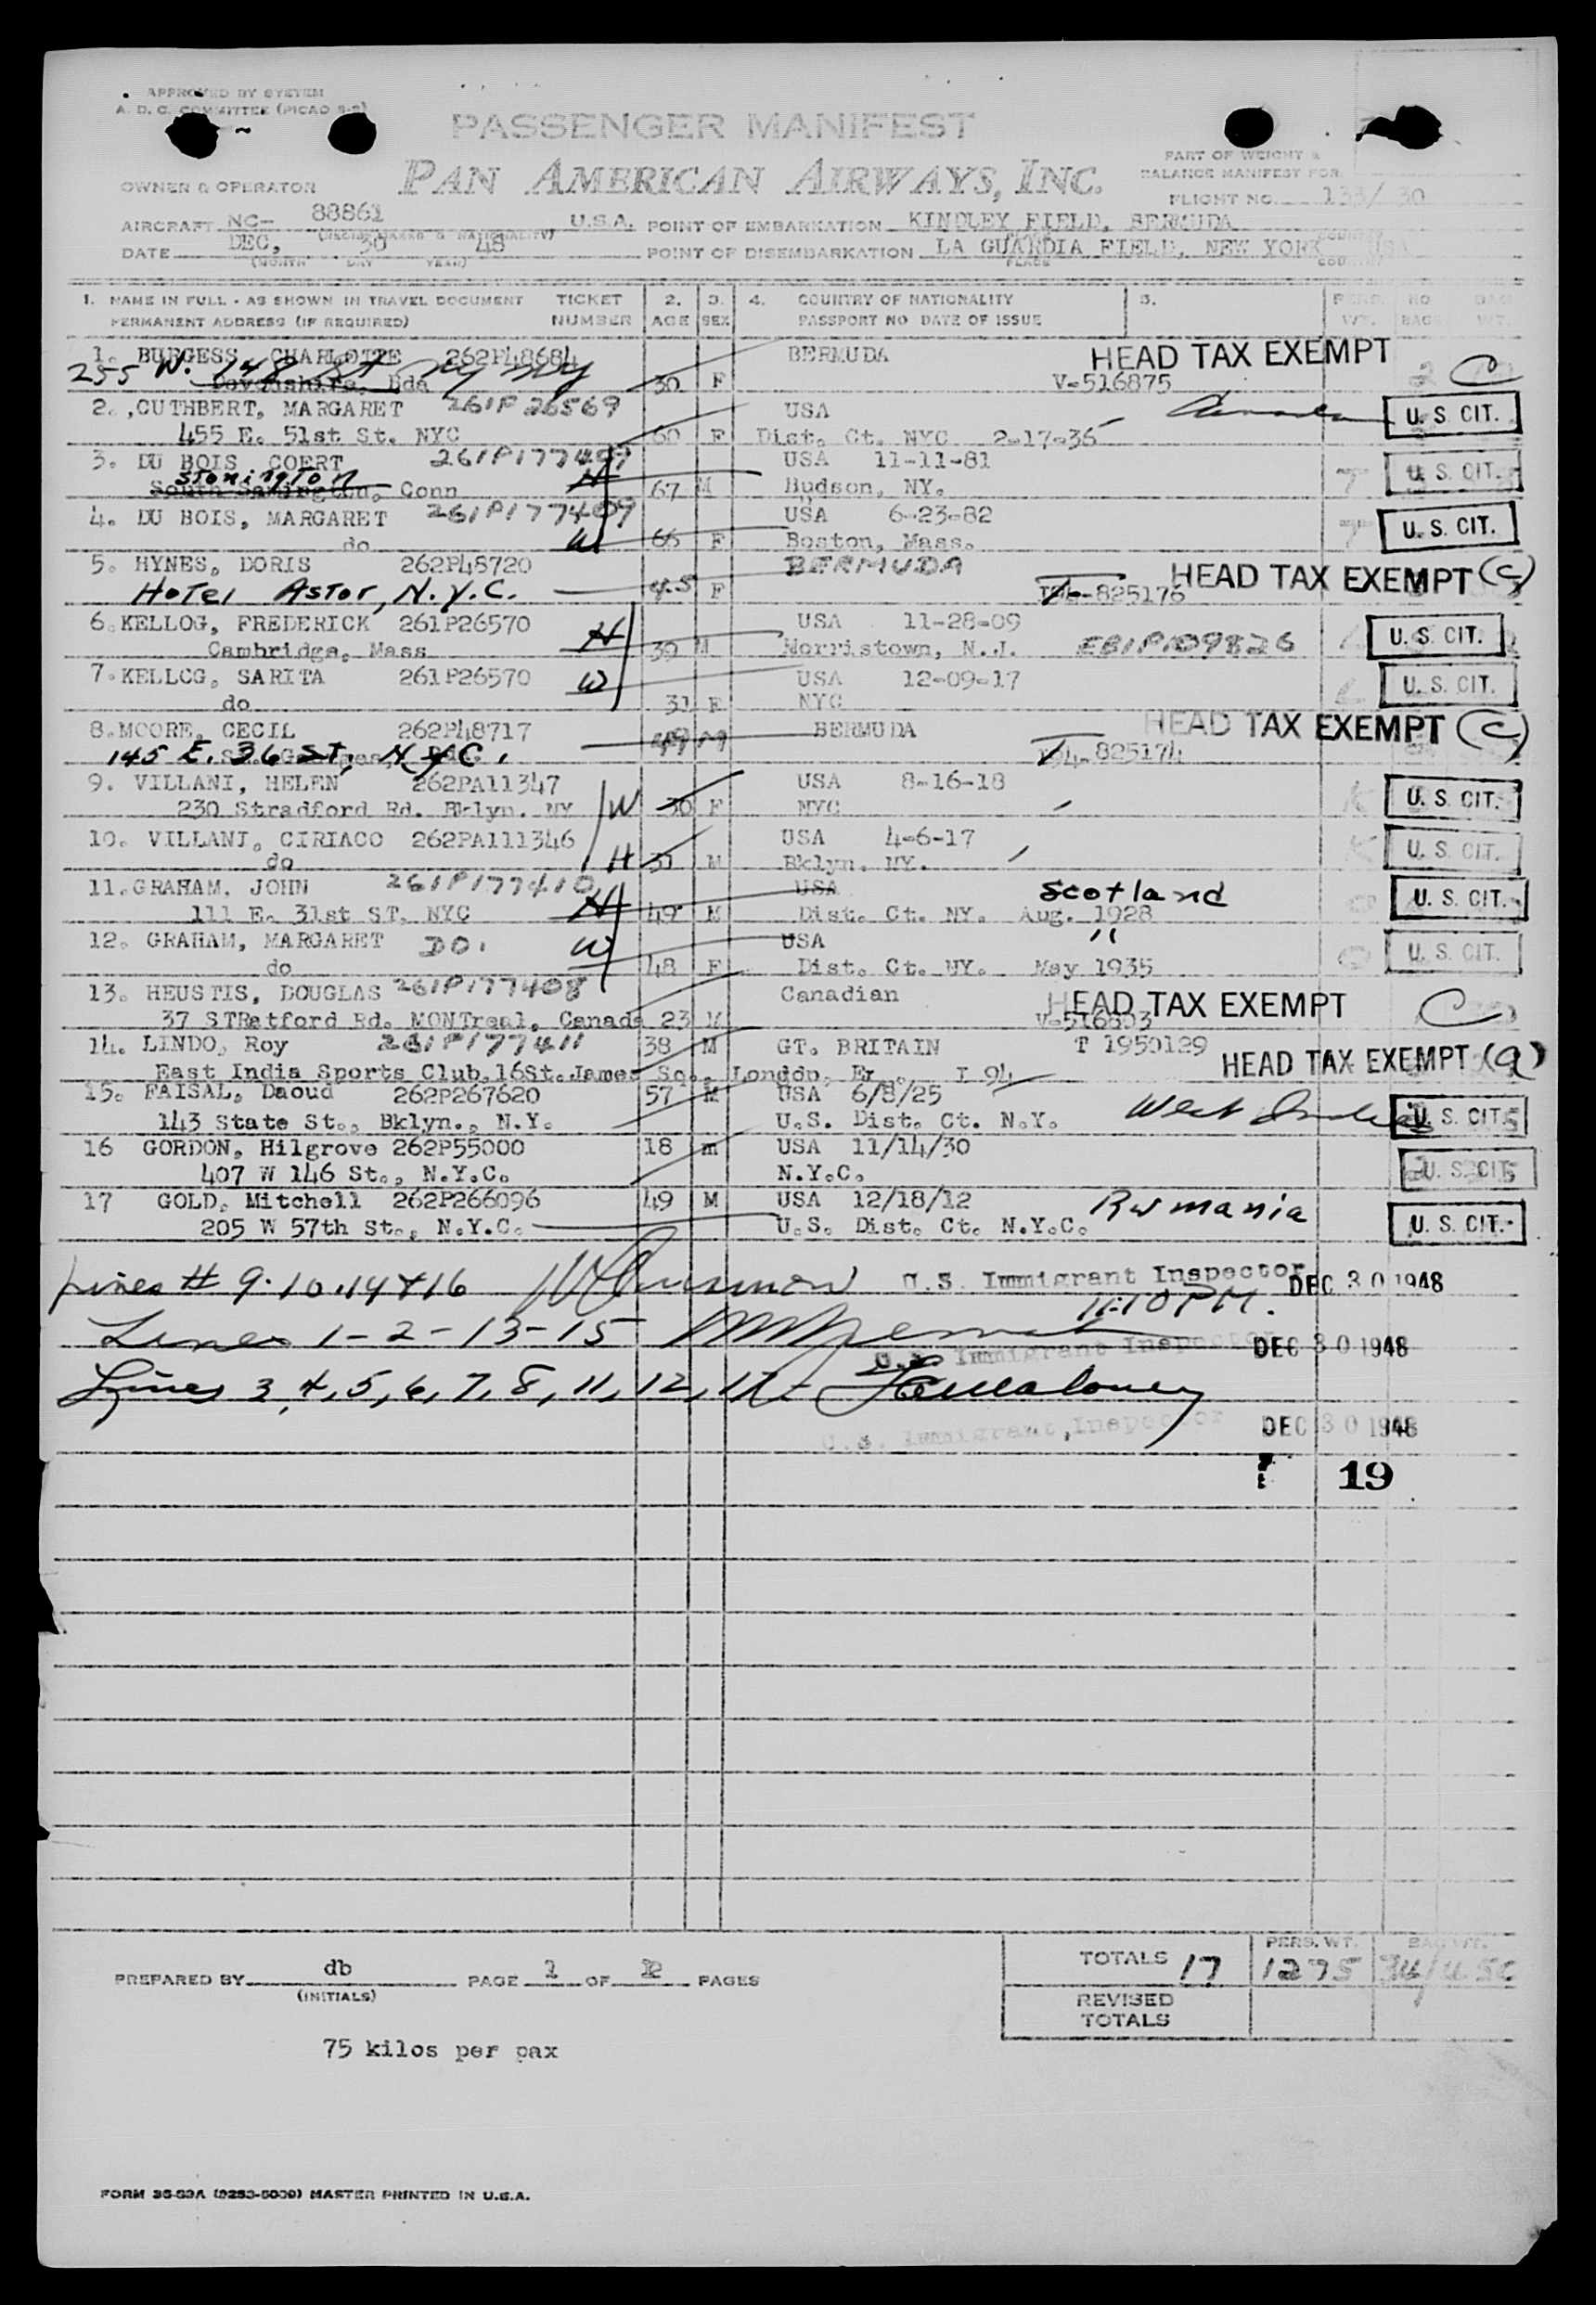 APPROVED BY SYSTEM
A. D. C. COMMITTEE (PICAO S-2)
PASSENGER MANIFEST
PAN AMERICAN AIRWAYS, INC.
PART OF WEIGHT &
BALANCE MANIFEST FOR
FLIGHT NO. 133/ 30
OWNER & OPERATOR
AIRCRAFT NC- 88861 U.S.A. POINT OF EMBARKATION KINDLEY FIELD, BERMUDA
DATE DEC, 30 48 POINT OF DISEMBARKATION LA GUARDIA FIELD, NEW YORK USA
(MONTH DAY YEAR) PLACE COUNTRY
1. NAME IN FULL - AS SHOWN IN TRAVEL DOCUMENT TICKET 2. 3. 4. COUNTRY OF NATIONALITY 5. PERS. NO BAG
PERMANENT ADDRESS (IF REQUIRED) NUMBER AGE SEX PASSPORT NO DATE OF ISSUE WT. BAGS WT.
1. BURGESS, CHARLOTTE 262P48684 BERMUDA HEAD TAX EXEMPT C
255 W. 148 St NY NY Devonshire, Bda 30 F V-516875
2. CUTHBERT, MARGARET 261P26569 USA U. S. CIT.
455 E. 51st St. NYC 60 F Dist. Ct. NYC 2-17-36
3. DU BOIS, COERT USA 11-11-81 U. S. CIT.
Stonington Conn H 67 M Hudson, NY.
4. DU BOIS, MARGARET 261P177409 USA 6-23-82 U. S. CIT.
do W 66 F Boston, Mass.
5. HYNES, DORIS 262P48720 BERMUDA HEAD TAX EXEMPT (C)
HoTel AsTor, N.Y.C. 45 F -825176
6. KELLOG, FREDERICK 261P26570 USA 11-28-09 U. S. CIT.
Cambridge, Mass H 39 M Morristown, N.J. EBIP109826
7. KELLOG, SARITA 261P26570 W USA 12-09-17 U. S. CIT.
do 31 F NYC
8. MOORE, CECIL 262P48717 49 M BERMUDA HEAD TAX EXEMPT (C)
145 E. 36 ST, N.Y.C. I94-825174
9. VILLANI, HELEN 262PA11347 USA 8-16-18 U. S. CIT.
230 Stradford Rd. Bklyn. NY W 30 F NYC
10. VILLANI, CIRIACO 262PA111346 USA 4-6-17 U. S. CIT.
do H 31 M Bklyn. NY.
11. GRAHAM, JOHN 261P177410 USA Scotland U. S. CIT.
111 E. 31st ST, NYC H 49 M Dist. Ct. NY. Aug. 1928
12. GRAHAM, MARGARET DO. W USA " U. S. CIT.
do 48 F Dist. Ct. NY. May 1935
13. HEUSTIS, DOUGLAS 261P177408 Canadian HEAD TAX EXEMPT C
37 STRatford Rd. MONTreal, Canada 23 M V-516803
14. LINDO, Roy 261P177411 38 M GT. BRITAIN T 1950129 HEAD TAX EXEMPT (a)
East India Sports Club, 16St. James Sq., London, I 94
15. FAISAL, Daoud 262P267620 57 M USA 6/8/25 West Indies U. S. CIT.
143 State St., Bklyn., N.Y. U.S. Dist. Ct. N.Y.
16 GORDON, Hilgrove 262P55000 18 m USA 11/14/30 U. S. CIT.
407 W 146 St., N.Y.C. N.Y.C.
17 GOLD, Mitchell 262P266096 49 M USA 12/18/12 Rumania U. S. CIT.
205 W 57th St., N.Y.C. U.S. Dist. Ct. N.Y.C.
Lines # 9.10.14 & 16 U.S. Immigrant Inspector DEC 30 1948
11:10 PM.
Lines 1-2-13-15 U.S. Immigrant Inspector DEC 30 1948
Lines 3, 4, 5, 6, 7, 8, 11, 12, 17
U.S. Immigrant Inspector DEC 30 1948
19
PREPARED BY db PAGE 1 OF PAGES
(INITIALS)
TOTALS 17 PERS. WT. 1275 BAG WT.
REVISED
TOTALS
75 kilos per pax
FORM 36-53A (9253-5009) MASTER PRINTED IN U.S.A.